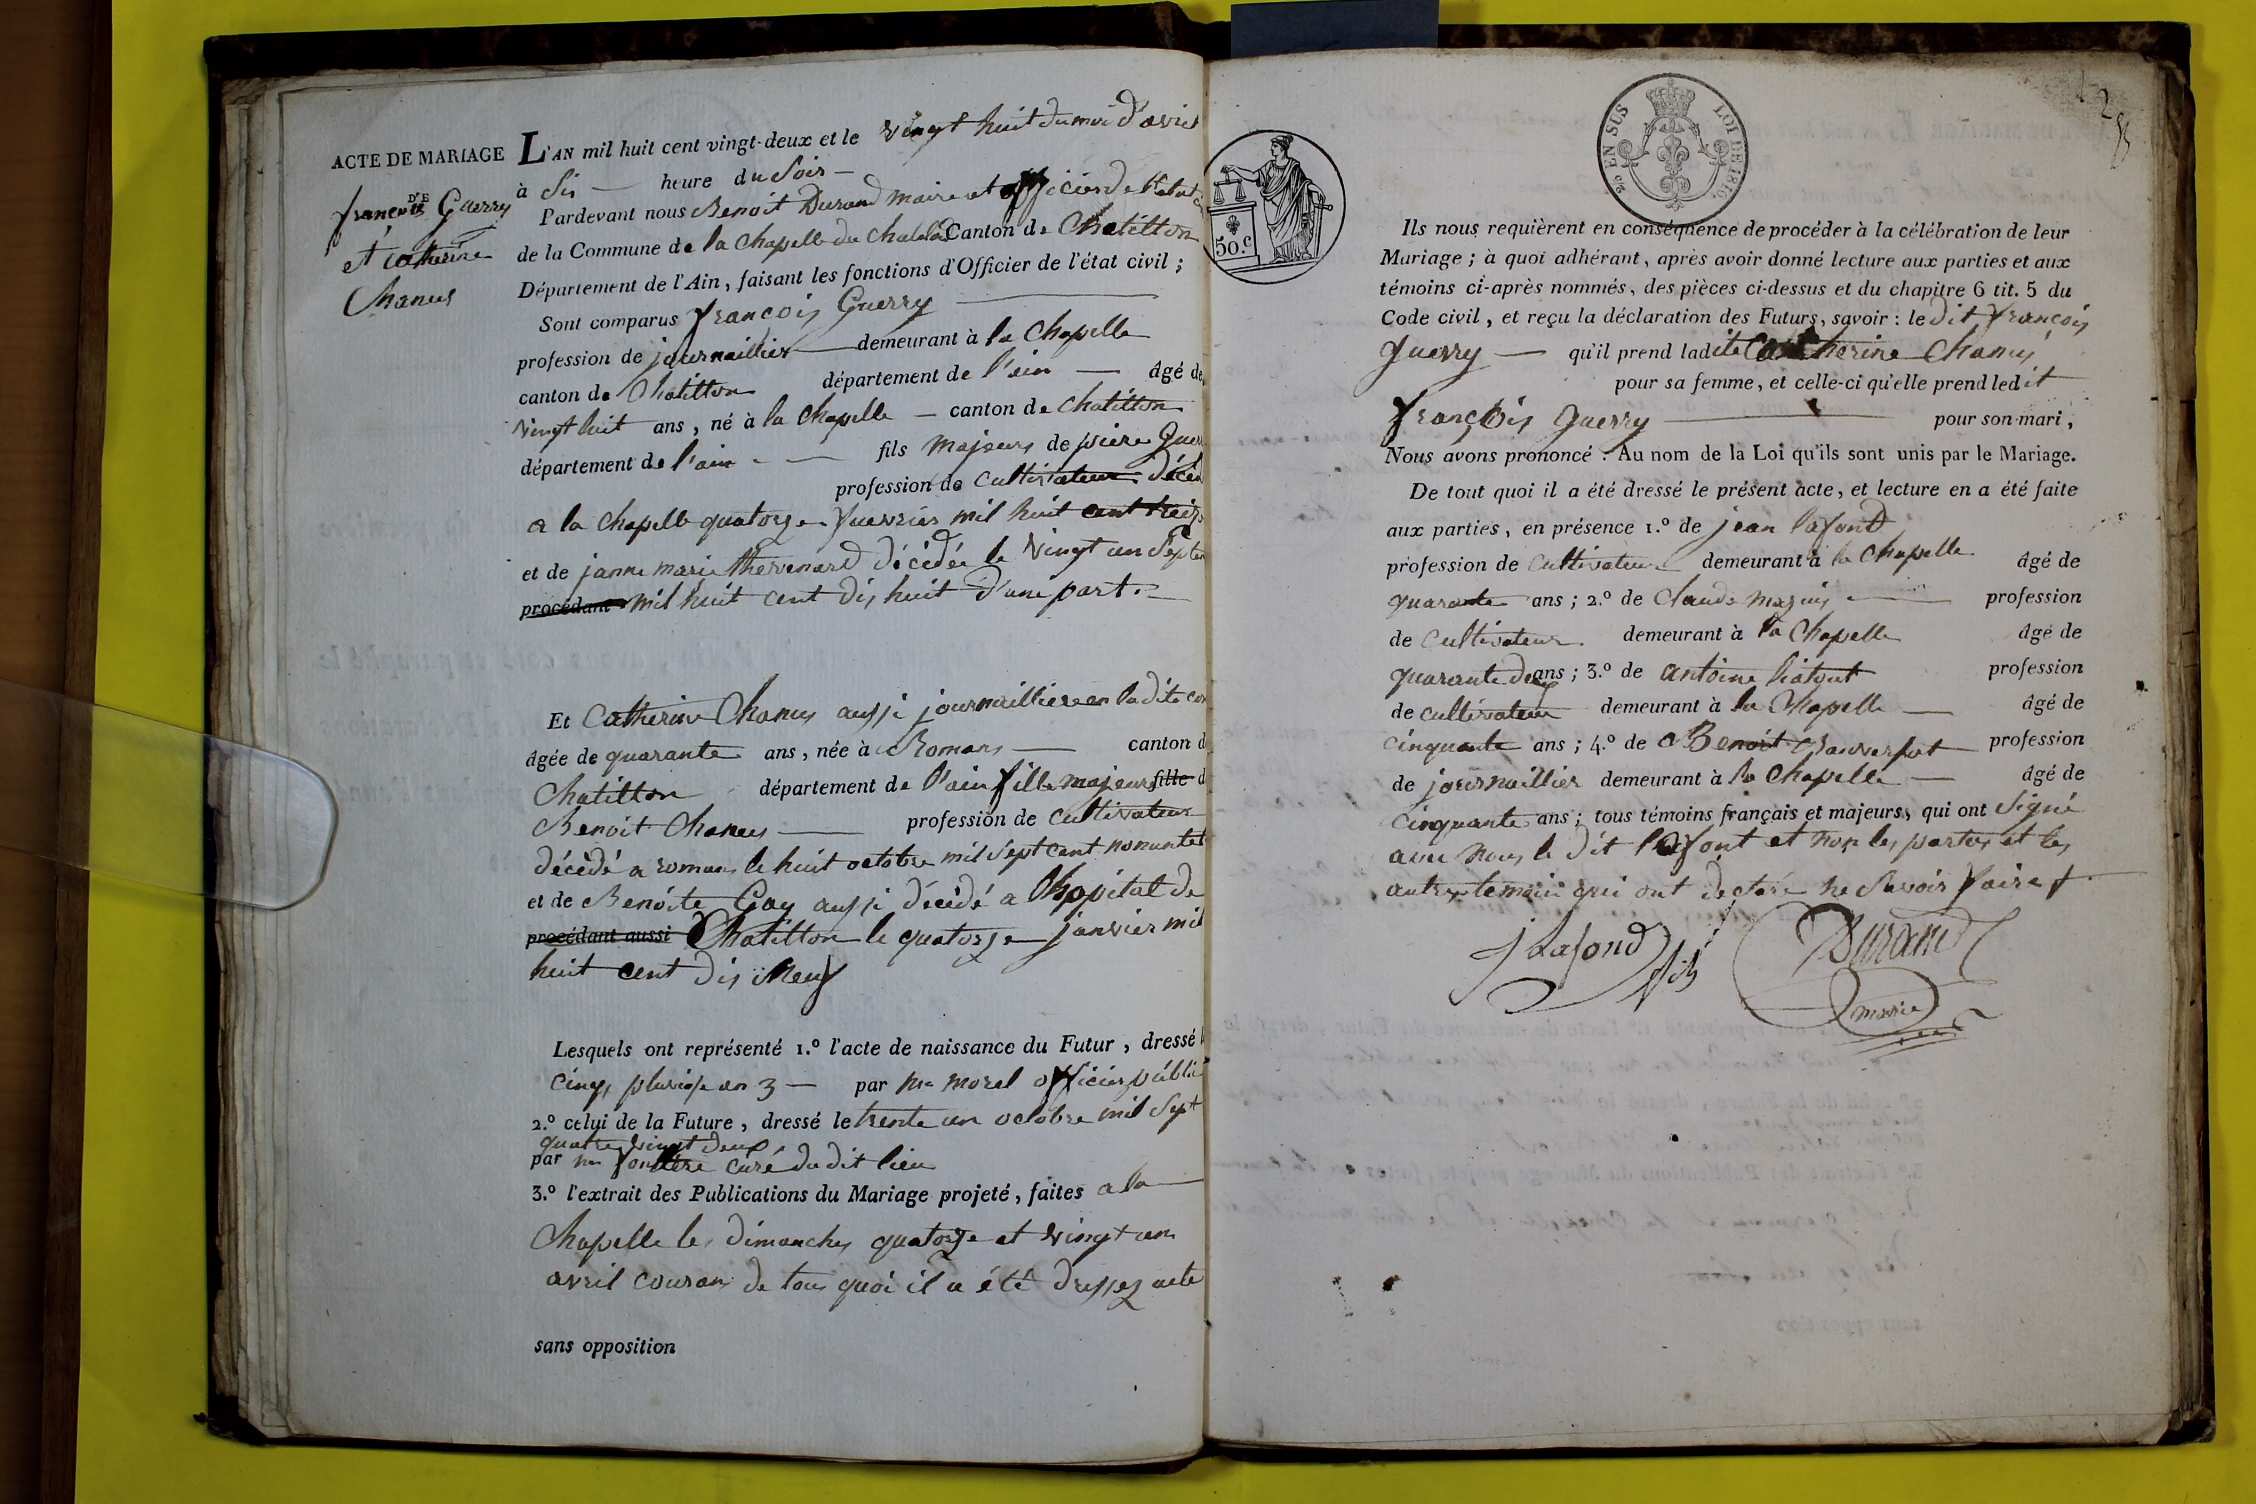 ACTE DE MARIAGE
DE
françois Guerry
et catherine
Chanus
L'AN mil huit cent vingt-deux et le vingt huit du moi d'avril
à Sis heure du Soir
Pardevant nous Benoit Durand maire et officier de l'etat
de la Commune de la Chapelle du Chatelard Canton de Chatillon
Département de l'Ain, faisant les fonctions d'Officier de l'état civil ;
Sont comparus françois Guerry
profession de journaillier demeurant à la Chapelle
canton de Chatillon département de l'ain âgé de
vingt huit ans, né à la Chapelle canton de chatillon
département de l'ain fils majeurs de piere Guer
profession de cultivateur décéd
a la chapelle quatorze fuevrier mil huit cent treize
et de janne marie thevenard décédée le vingt un Septem
procédant mil huit cent dis huit d'une part.
Et Catherine Chanus aussi journailliere en la dite com
âgée de quarante ans, née à Romans canton d
Chatillon département de l'ain fille majeurs fille d
Benoit Chanus profession de cultivateur
décédé a romans le huit octobre mil sept cent nonante
et de Benoite Gay aussi décédé a l'hopital de
procédant aussi Chatillon le quatorze janvier mil
huit cent dis Neuf
Lesquels ont représenté 1.º l'acte de naissance du Futur, dressé l
cinq pluviose an 3 par mr morel officier public
2.º celui de la Future, dressé le trente un octobre mil sept
quatre vingt deux
par mr curé du dit lieu
3.º l'extrait des Publications du Mariage projeté, faites a la
Chapelle les dimanches quatorze et vingt un
avril couran de tous quoi il a été dressez acte
sans opposition
50.c
2 c. EN SUS LOI DE 1816
Ils nous requièrent en conséquence de procéder à la célébration de leur
Mariage ; à quoi adhérant, après avoir donné lecture aux parties et aux
témoins ci-après nommés, des pièces ci-dessus et du chapitre 6 tit. 5 du
Code civil, et reçu la déclaration des Futurs, savoir : le dit françois
guerry qu'il prend ladite Catherine Chanus
pour sa femme, et celle-ci qu'elle prend ledit
françois guerry pour son mari,
Nous avons prononcé : Au nom de la Loi qu'ils sont unis par le Mariage.
De tout quoi il a été dressé le présent acte, et lecture en a été faite
aux parties, en présence 1.º de jean lafond
profession de cultivateur demeurant à la Chapelle âgé de
quarante ans ; 2.º de Claude profession
de cultivateur demeurant à la Chapelle âgé de
quarante deux ans ; 3.º de antoine profession
de cultivateur demeurant à la Chapelle âgé de
cinquante ans ; 4.º de Benoit profession
de journaillier demeurant à la Chapelle âgé de
cinquante ans ; tous témoins français et majeurs, qui ont signé
avec nous le dit lafont et non les parties et les
autres temoin qui ont declaré ne savoir faire
J Lafond fils
Durand
maire